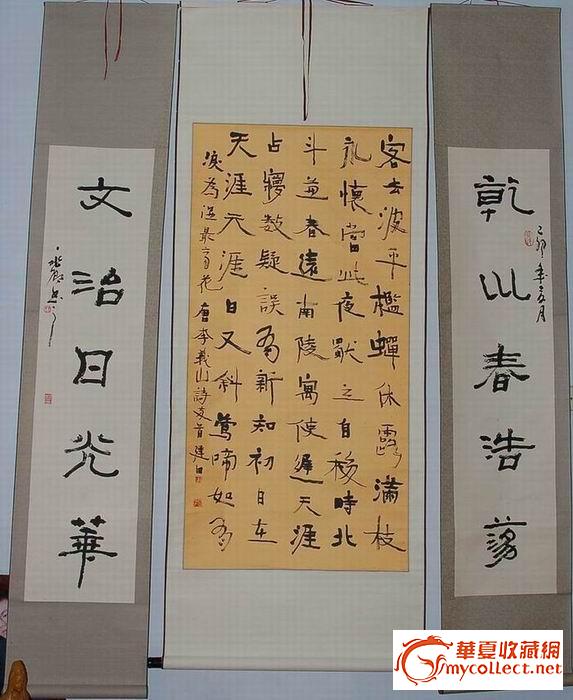 己卯年夏月
乾巛春浩蕩
客去波平檻蟬休露滿枝
永懷當此夜自移時北
斗兼春遠南陵寓使遲天涯
占夢數疑誤有新知初日在
天涯天涯日又斜鶯啼如有
淚為濕最高花 唐李義山詩首建
文治日光華
華夏收藏網
mycollect.net